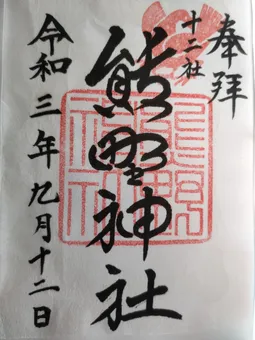 奉拝
十二社
熊野神社
令和三年九月十二日